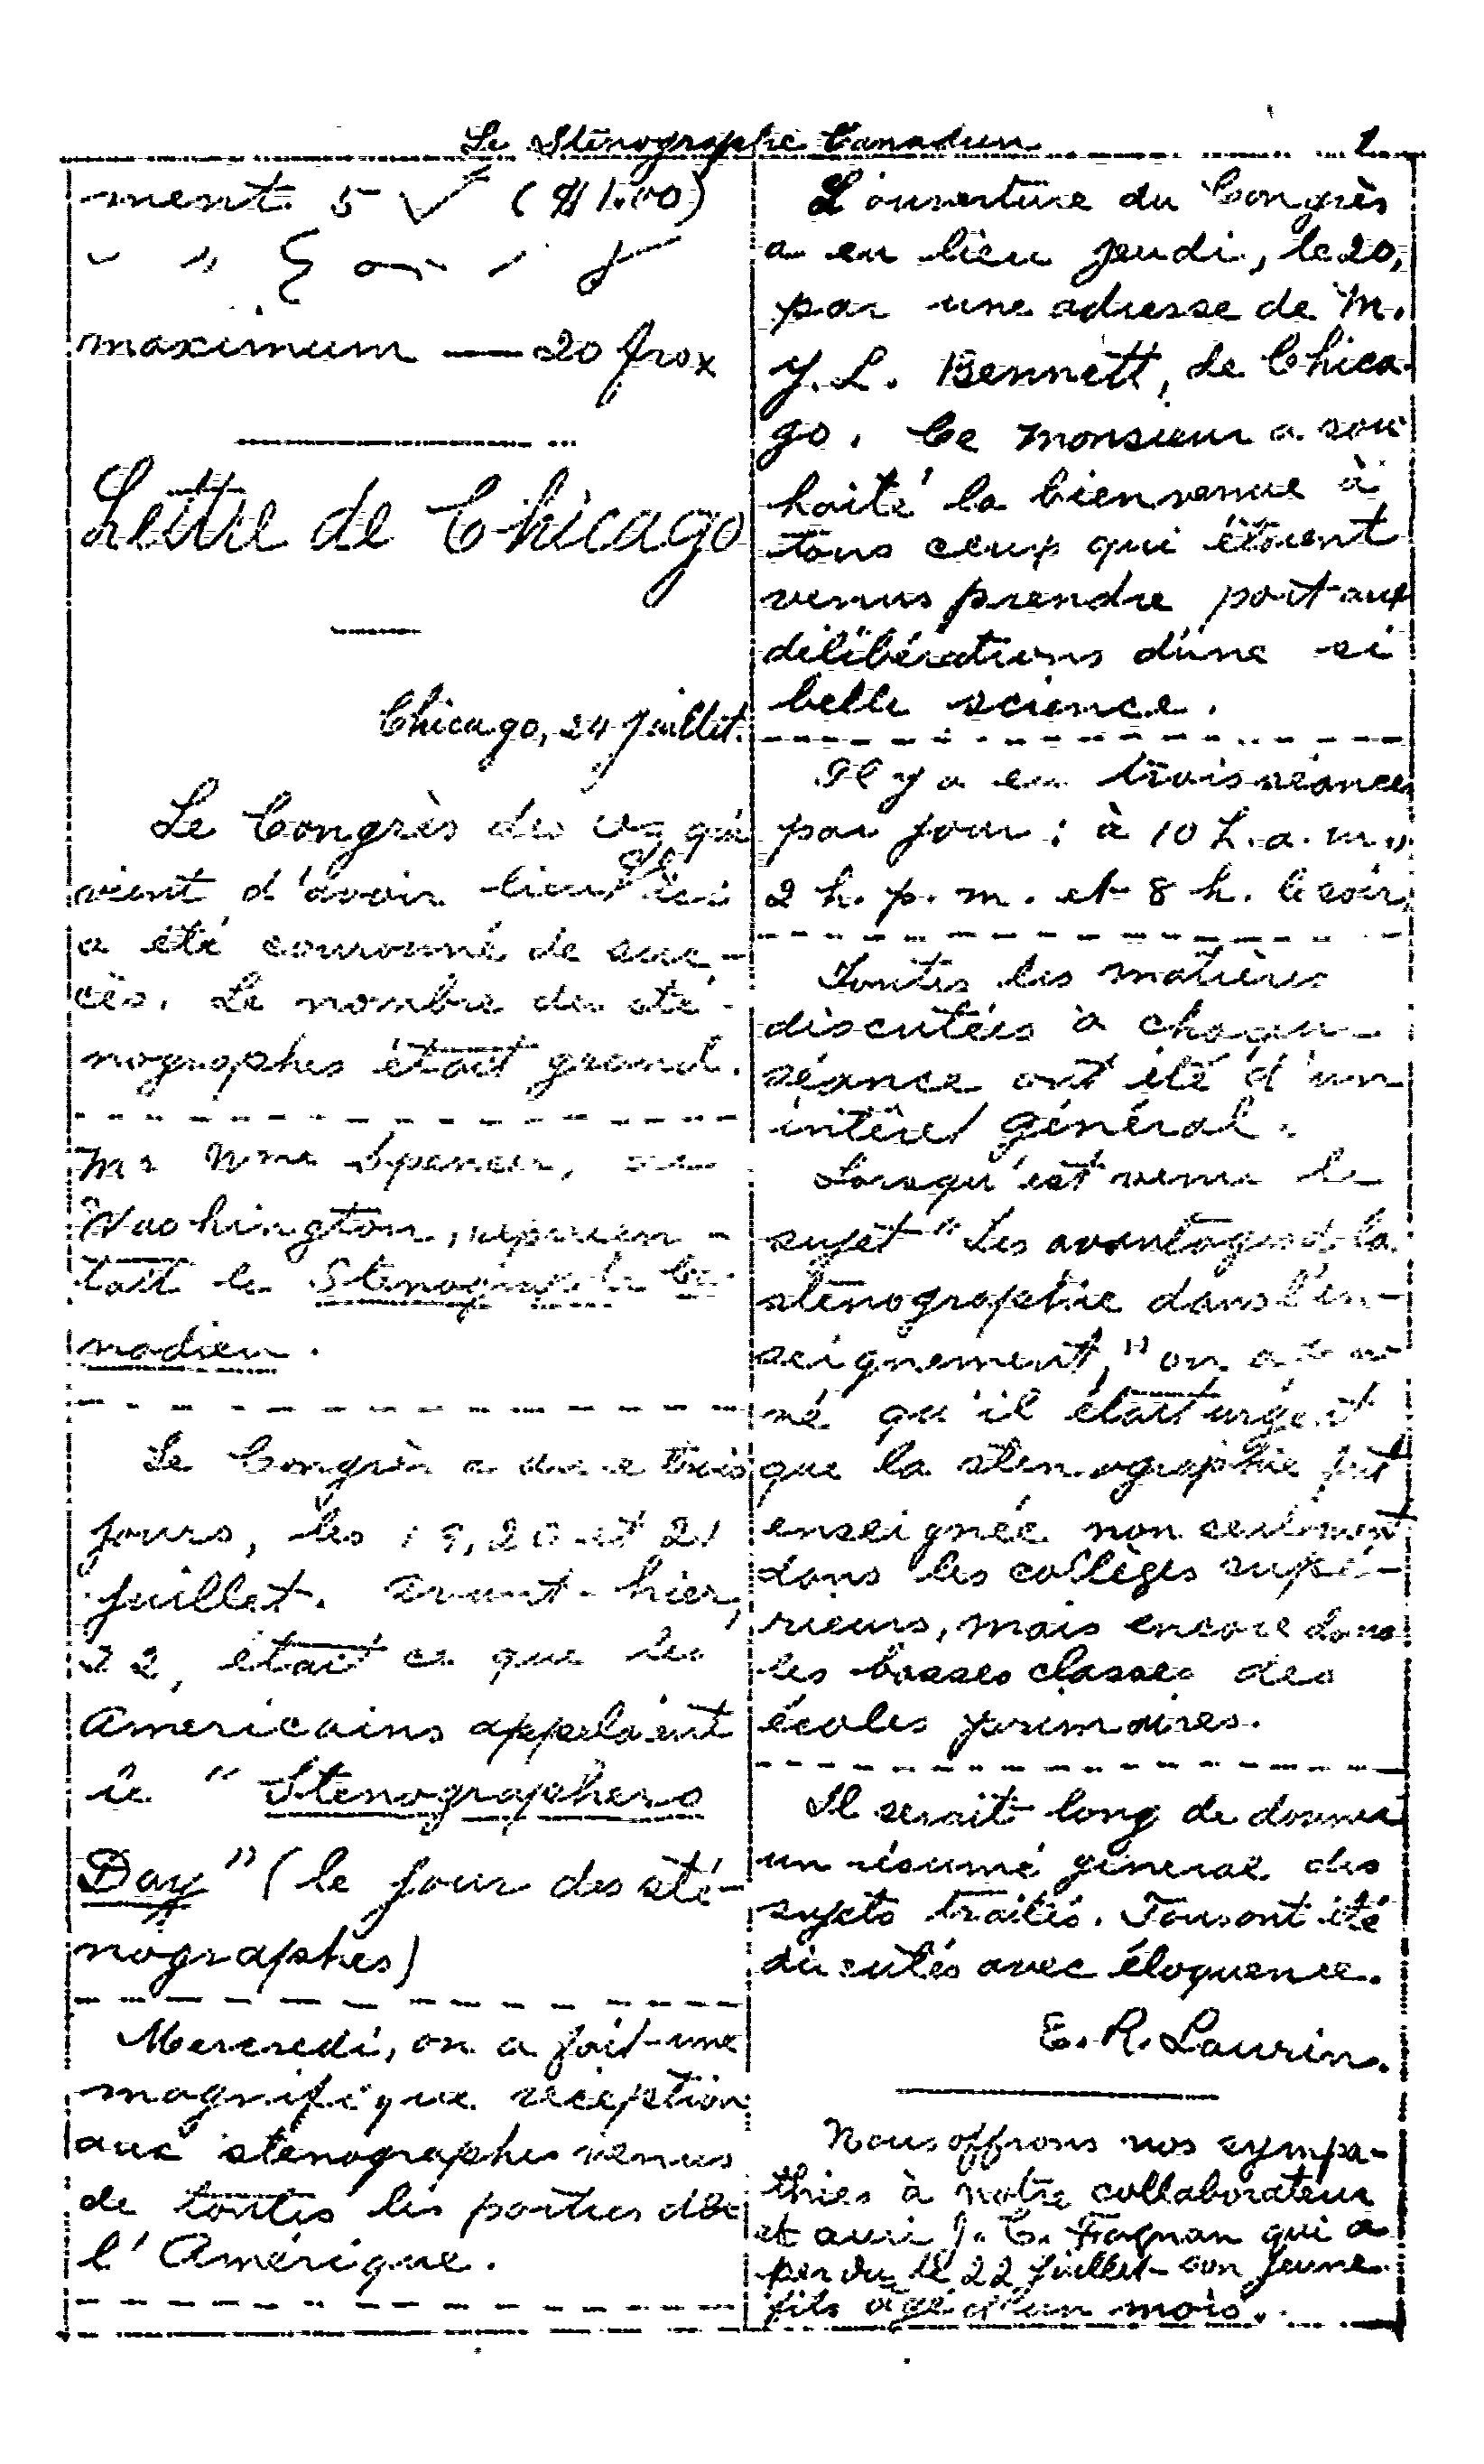 Le Sténographe Canadien
ment 5 ($1.00)
maximum — 20 frs
Lettre de Chicago
Chicago, 24 juillet.
Le Congrès des qui
vient d'avoir lieu ici
a été couronné de suc-
cès. Le nombre des sté-
nographes était grand.
Mr Spencer, de
Washington, représen-
tait le Sténographe Ca-
nadien.
Le Congrès a duré trois
jours, les 19, 20 et 21
juillet. Avant-hier,
22, était ce que les
Américains appelaient
le "Stenographers
Day" (le jour des sté-
nographes)
Mercredi, on a fait une
magnifique réception
aux sténographes venus
de toutes les parties de
l'Amérique.
L'ouverture du Congrès
a eu lieu jeudi, le 20,
par une adresse de M.
Y. L. Bennett, de Chica-
go. Ce monsieur a sou
haité la bienvenue à
tous ceux qui étaient
venus prendre part aux
délibérations d'une si
belle science.
Il y a eu trois séances
par jour : à 10 h. a. m.,
2 h. p. m. et 8 h. le soir.
Toutes les matières
discutées à chaque
séance ont été d'un
intérêt général.
Lorsqu'est venu le
sujet "Les avantages de la
sténographie dans l'en-
seignement," on a
né qu'il était urgent
que la sténographie fût
enseignée non seulement
dans les collèges supé-
rieurs, mais encore dans
les basses classes des
écoles primaires.
Il serait long de donner
un résumé général des
sujets traités. Tous ont été
discutés avec éloquence.
E. R. Laurin.
Nous offrons nos sympa-
thies à notre collaborateur
et ami J. C. Fragnan qui a
perdu le 22 juillet son jeune
fils âgé d'un mois.